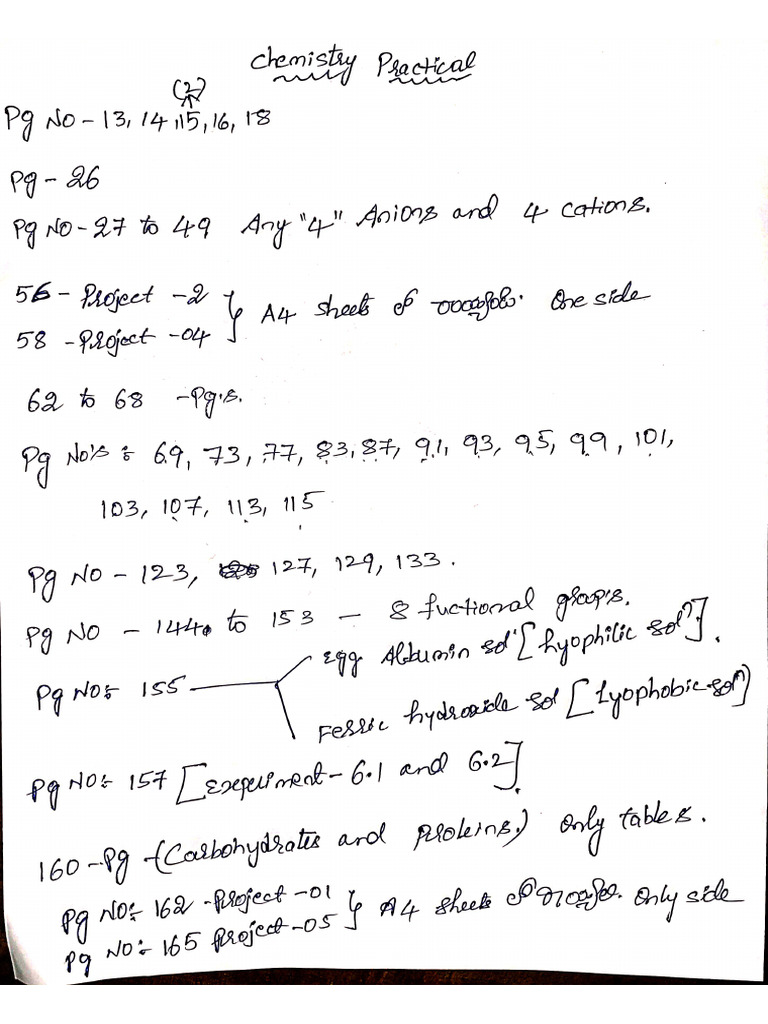 Chemistry Practical
(2)
Pg NO - 13, 14, 15, 16, 18
Pg - 26
Pg NO - 27 to 49 Any "4" Anions and 4 cations.
56 - Project - 2
A4 sheets లో రాయాలి. One side
58 - Project - 04
62 to 68 - Pg's.
Pg No's : 69, 73, 77, 83, 87, 91, 93, 95, 99, 101,
103, 107, 113, 115
Pg NO - 123, 127, 129, 133.
Pg NO - 144 to 153 - 8 fuctional group's.
Egg Albumin sol [lyophilic sol].
Pg NO:- 155
Ferric hydroxide sol [Lyophobic sol]
Pg NO:- 157 [Experiment - 6.1 and 6.2].
160 - Pg - (Carbohydrates and proteins.) Only tables.
Pg NO:- 162 - Project - 01
A4 sheets లో రాయాలి. Only side
Pg NO:- 165 Project - 05